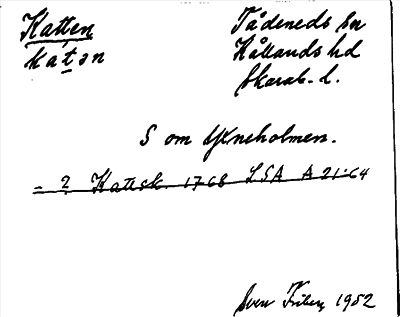 Katten
kátən
Tådeneds sn
Kållands hd
Skarab. l.
S om Ekneholmen.
= ? Kattsk. 1768 LSA A 21:64
Sven Friberg 1952